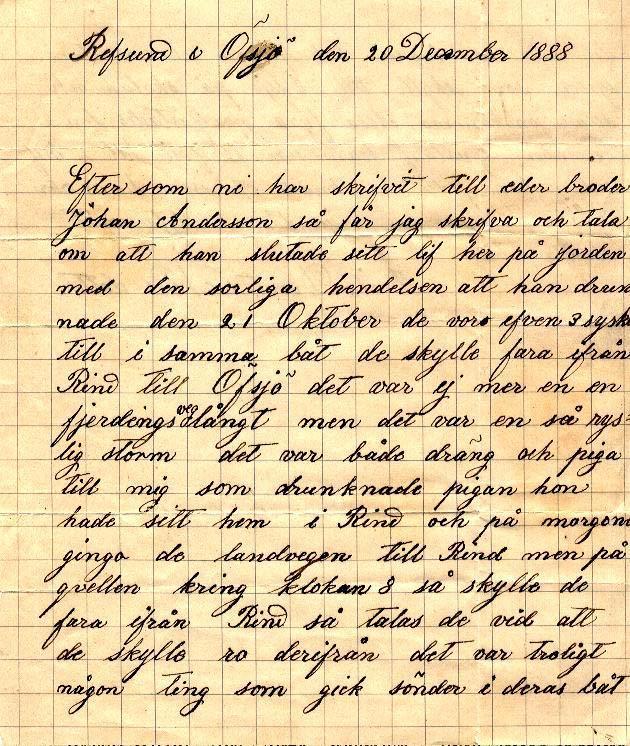 Refsund & Öfsjö den 20 December 1888
Efter som ni har skrifvit till eder broder
Johan Andersson så får jag skrifva och tala
om att han slutade sitt lif her på jorden
med den sorliga hendelsen att han drunk
nade den 21 Oktober de voro efven 3 sysk
till i samma båt de skylle fara ifrån
Rind till Öfsjö det var ej mer en en
fjerdingsveg långt men det var en så rys=
lig storm det var både dräng och piga
till mig som drunknade pigan hon
hade sitt hem i Rind och på morgone
gingo de landvegen till Rind men på
qvellen kring klokan 8 så skylle de
fara ifrån Rind så talas de vid att
de skylle ro derifrån det var troligt
någon ting som gick sönder i deras båt